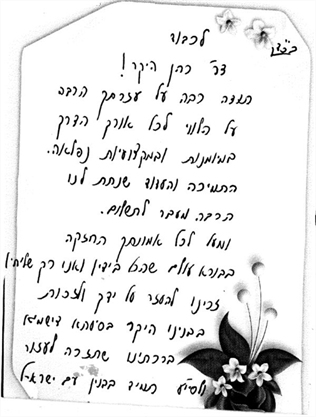 בס"ד
לכבוד
דר' כהן היקר!
תודה רבה על עזרתך הרבה
על הליווי לכל אורך הדרך
במיומנות ובמקצועיות נפלאה.
התמיכה והעידוד שנתת לנו
הרבה מעבר לתשלום.
ומעל לכל אמונתך החזקה
בבורא עולם שהכל בידיו ואנו רק שליחיו
זכינו להעזר על ידך ולזכות
בבנינו היקר בסיעתא דישמיא
ברכתינו שתזכה לעזור
ולסייע תמיד בבנין עם ישראל